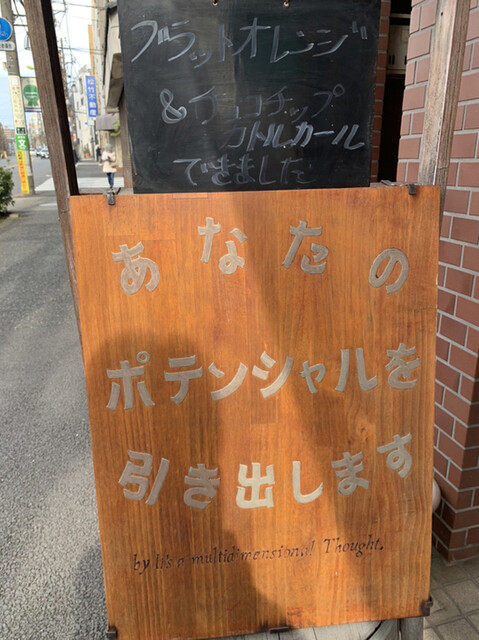 ブラットオレンジ
&チョコチップ
コトルカール
できました
あなたの
ポテンシャルを
引き出します
by It's a multidimensional Thought.